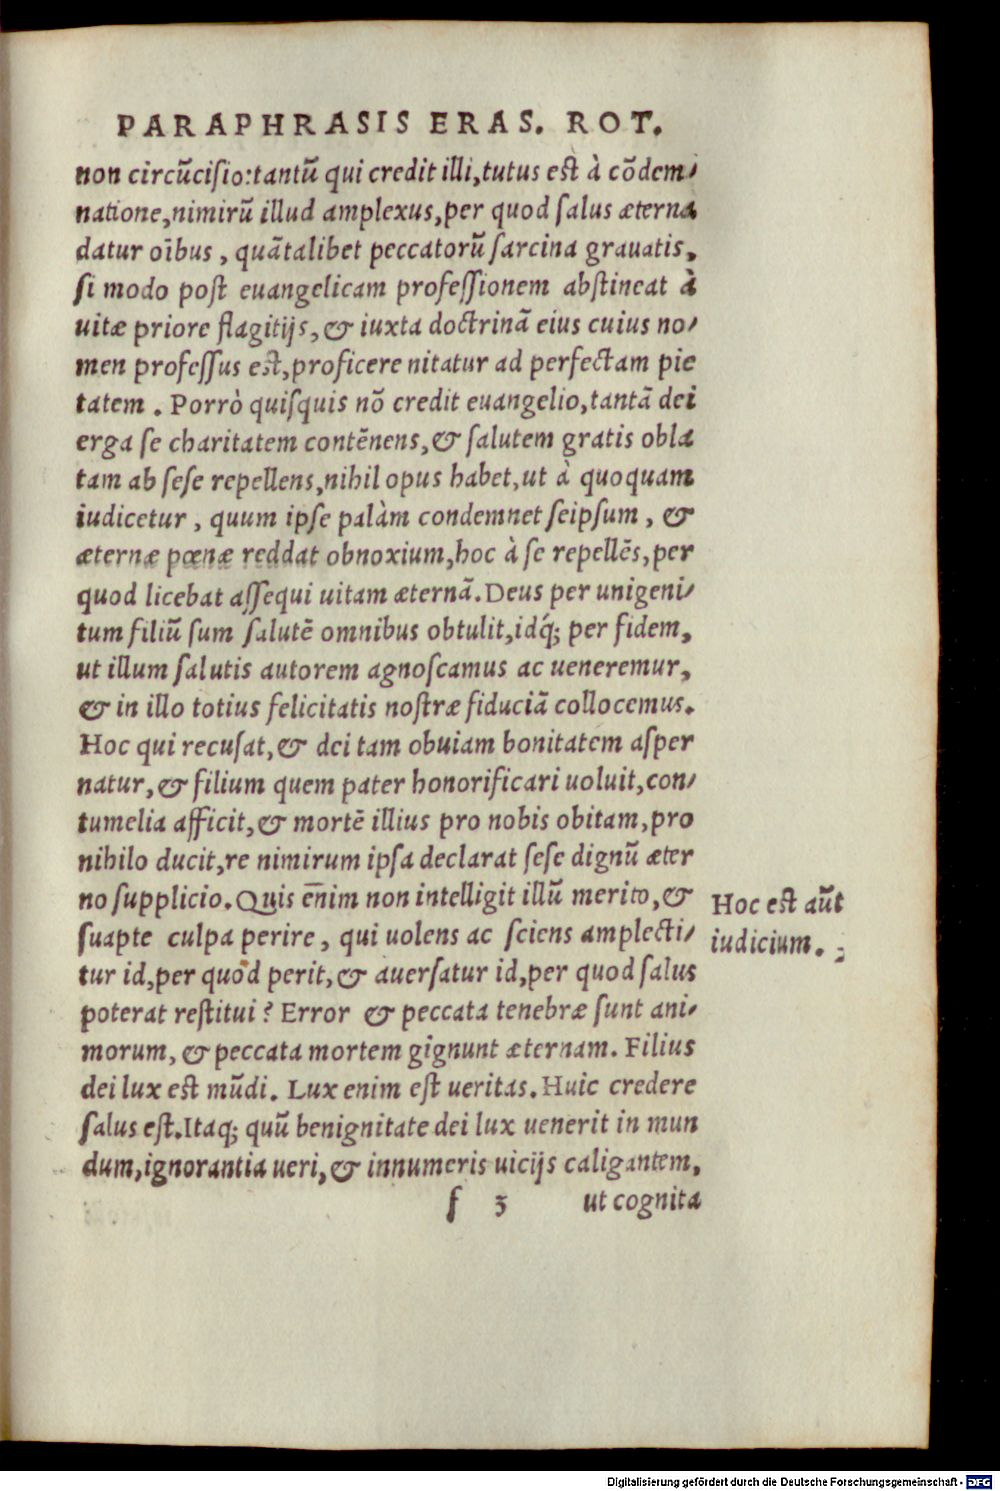 PARAPHRASIS ERAS. ROT.
non circũcisio:tantũ qui credit illi,tutus est à cõdem/
natione,nimirũ illud amplexus,per quod salus æterna
datur oĩbus , quãtalibet peccatorũ sarcina grauatis,
si modo post euangelicam professionem abstineat à
uitæ priore flagitijs, & iuxta doctrinã eius cuius no/
men professus est,proficere nitatur ad perfectam pie
tatem . Porrò quisquis nõ credit euangelio,tantã dei
erga se charitatem contẽnens, & salutem gratis obla
tam ab sese repellens,nihil opus habet,ut à quoquam
iudicetur , quum ipse palàm condemnet seipsum , &
æternæ pœnæ reddat obnoxium,hoc à se repellẽs,per
quod licebat assequi uitam æternã.Deus per unigeni/
tum filiũ sum salutẽ omnibus obtulit,idq́; per fidem,
ut illum salutis autorem agnoscamus ac ueneremur,
& in illo totius felicitatis nostræ fiduciã collocemus.
Hoc qui recusat, & dei tam obuiam bonitatem asper
natur, & filium quem pater honorificari uoluit,con/
tumelia afficit, & mortẽ illius pro nobis obitam,pro
nihilo ducit,re nimirum ipsa declarat sese dignũ æter
no supplicio.Quis en̄im non intelligit illũ merito, &
suapte culpa perire , qui uolens ac sciens amplecti/
tur id,per quod perit, & auersatur id,per quod salus
poterat restitui? Error & peccata tenebræ sunt ani/
morum, & peccata mortem gignunt æternam. Filius
dei lux est mũdi. Lux enim est ueritas. Huic credere
salus est.Itaq; quũ benignitate dei lux uenerit in mun
dum,ignorantia ueri, & innumeris uicijs caligantem,
f 3 ut cognita
Hoc est aũt
iudicium.
Digitalisierung gefördert durch die Deutsche Forschungsgemeinschaft - DFG